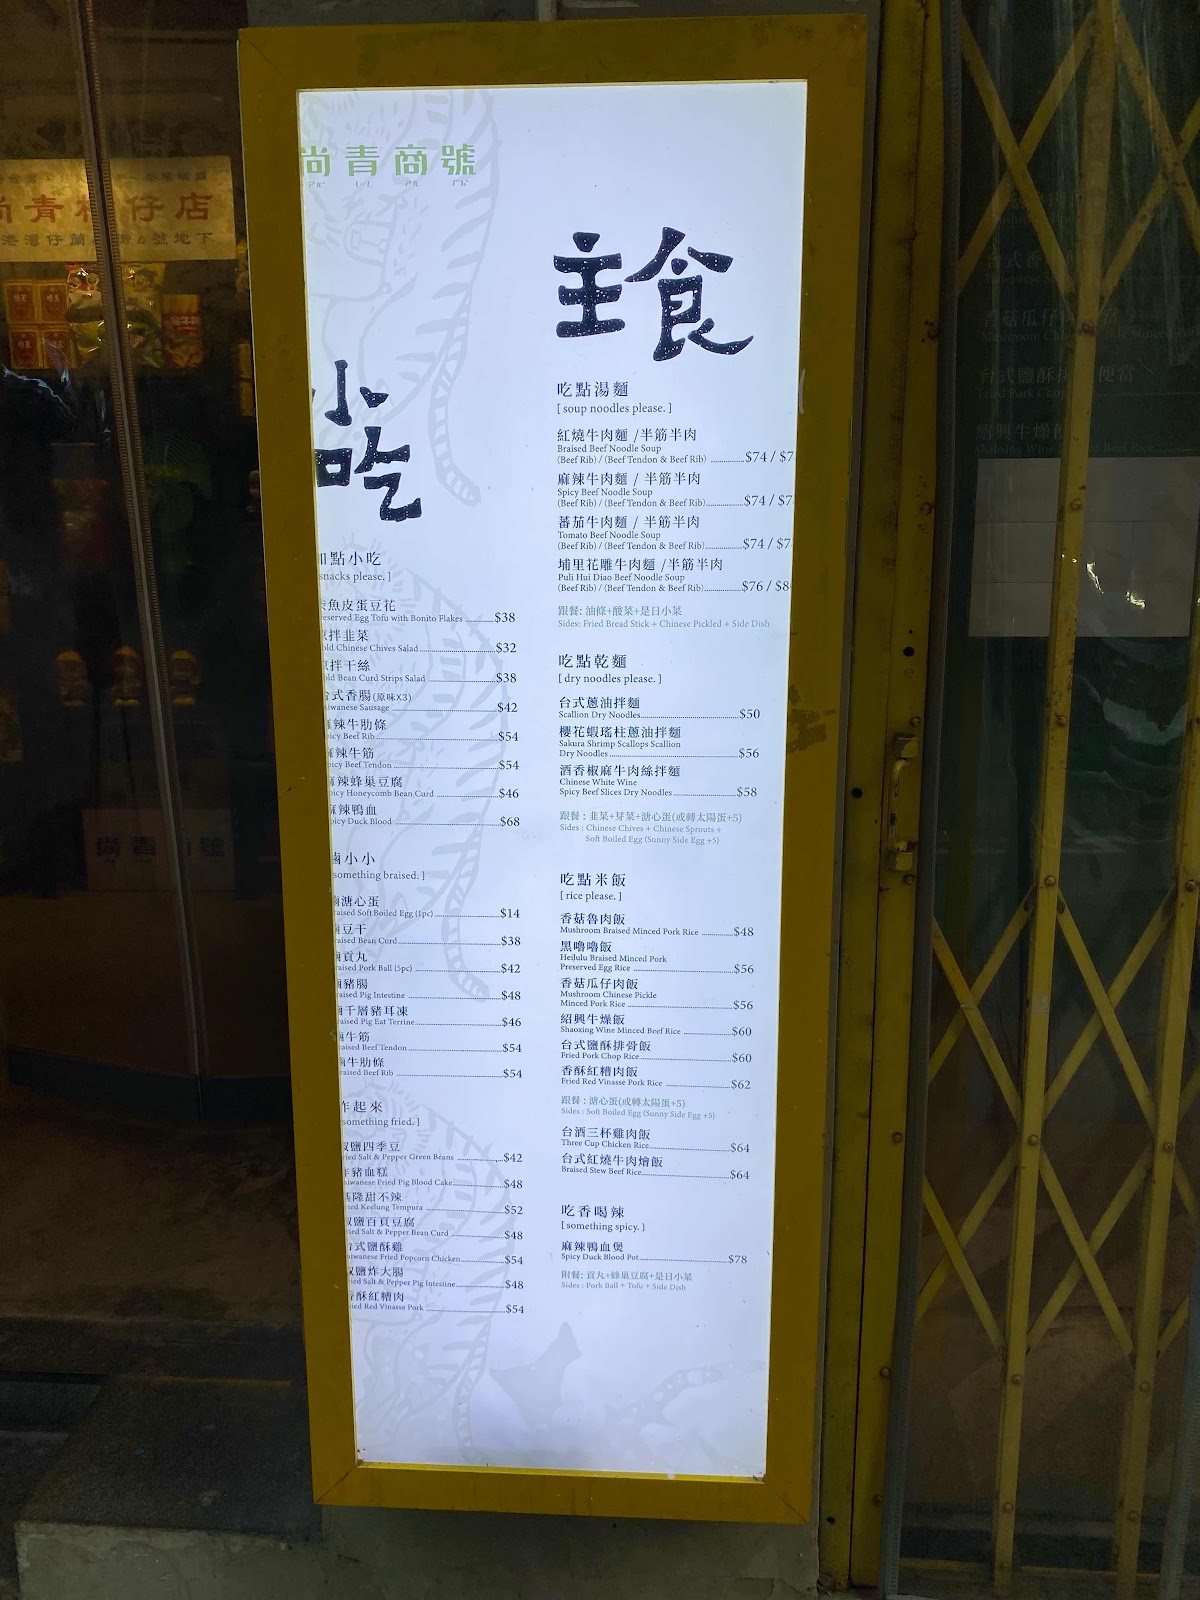 尚青商號
小吃
點小吃
snacks please. ]
魚皮蛋豆花
Preserved Egg Tofu with Bonito Flakes $38
拌韭菜
Cold Chinese Chives Salad $32
拌干絲
Cold Bean Curd Strips Salad $38
台式香腸(原味X3)
Taiwanese Sausage $42
麻辣牛肋條
Spicy Beef Rib $54
麻辣牛筋
Spicy Beef Tendon $54
麻辣蜂巢豆腐
Spicy Honeycomb Bean Curd $46
麻辣鴨血
Spicy Duck Blood $68
滷小小
something braised. ]
滷溏心蛋
Braised Soft Boiled Egg (1pc) $14
滷豆干
Braised Bean Curd $38
滷貢丸
Braised Pork Ball (5pc) $42
滷豬腸
Braised Pig Intestine $48
滷千層豬耳凍
Braised Pig Eat Terrine $46
滷牛筋
Braised Beef Tendon $54
滷牛肋條
Braised Beef Rib $54
炸起來
something fried. ]
椒鹽四季豆
Fried Salt & Pepper Green Beans $42
炸豬血糕
Taiwanese Fried Pig Blood Cake $48
基隆甜不辣
Fried Keelung Tempura $52
椒鹽百頁豆腐
Fried Salt & Pepper Bean Curd $48
台式鹽酥雞
Taiwanese Fried Popcorn Chicken $54
椒鹽炸大腸
Fried Salt & Pepper Pig Intestine $48
香酥紅糟肉
Fried Red Vinasse Pork $54
主食
吃點湯麵
[ soup noodles please. ]
紅燒牛肉麵 /半筋半肉
Braised Beef Noodle Soup
(Beef Rib) / (Beef Tendon & Beef Rib) $74 / $7
麻辣牛肉麵 / 半筋半肉
Spicy Beef Noodle Soup
(Beef Rib) / (Beef Tendon & Beef Rib) $74 / $7
蕃茄牛肉麵 / 半筋半肉
Tomato Beef Noodle Soup
(Beef Rib) / (Beef Tendon & Beef Rib) $74 / $7
埔里花雕牛肉麵 /半筋半肉
Puli Hui Diao Beef Noodle Soup
(Beef Rib) / (Beef Tendon & Beef Rib) $76 / $8
跟餐: 油條+酸菜+是日小菜
Sides: Fried Bread Stick + Chinese Pickled + Side Dish
吃點乾麵
[ dry noodles please. ]
台式蔥油拌麵
Scallion Dry Noodles $50
櫻花蝦瑤柱蔥油拌麵
Sakura Shrimp Scallops Scallion
Dry Noodles $56
酒香椒麻牛肉絲拌麵
Chinese White Wine
Spicy Beef Slices Dry Noodles $58
跟餐 : 韭菜+芽菜+溏心蛋(或轉太陽蛋+5)
Sides : Chinese Chives + Chinese Sprouts +
Soft Boiled Egg (Sunny Side Egg +5)
吃點米飯
[ rice please. ]
香菇魯肉飯
Mushroom Braised Minced Pork Rice $48
黑嚕嚕飯
Heilulu Braised Minced Pork
Preserved Egg Rice $56
香菇瓜仔肉飯
Mushroom Chinese Pickle
Minced Pork Rice $56
紹興牛燥飯
Shaoxing Wine Minced Beef Rice $60
台式鹽酥排骨飯
Fried Pork Chop Rice $60
香酥紅糟肉飯
Fried Red Vinasse Pork Rice $62
跟餐 : 溏心蛋(或轉太陽蛋+5)
Sides : Soft Boiled Egg (Sunny Side Egg +5)
台酒三杯雞肉飯
Three Cup Chicken Rice $64
台式紅燒牛肉燴飯
Braised Stew Beef Rice $64
吃香喝辣
[ something spicy. ]
麻辣鴨血煲
Spicy Duck Blood Pot $78
附餐: 貢丸+蜂巢豆腐+是日小菜
Sides : Pork Ball + Tofu + Side Dish